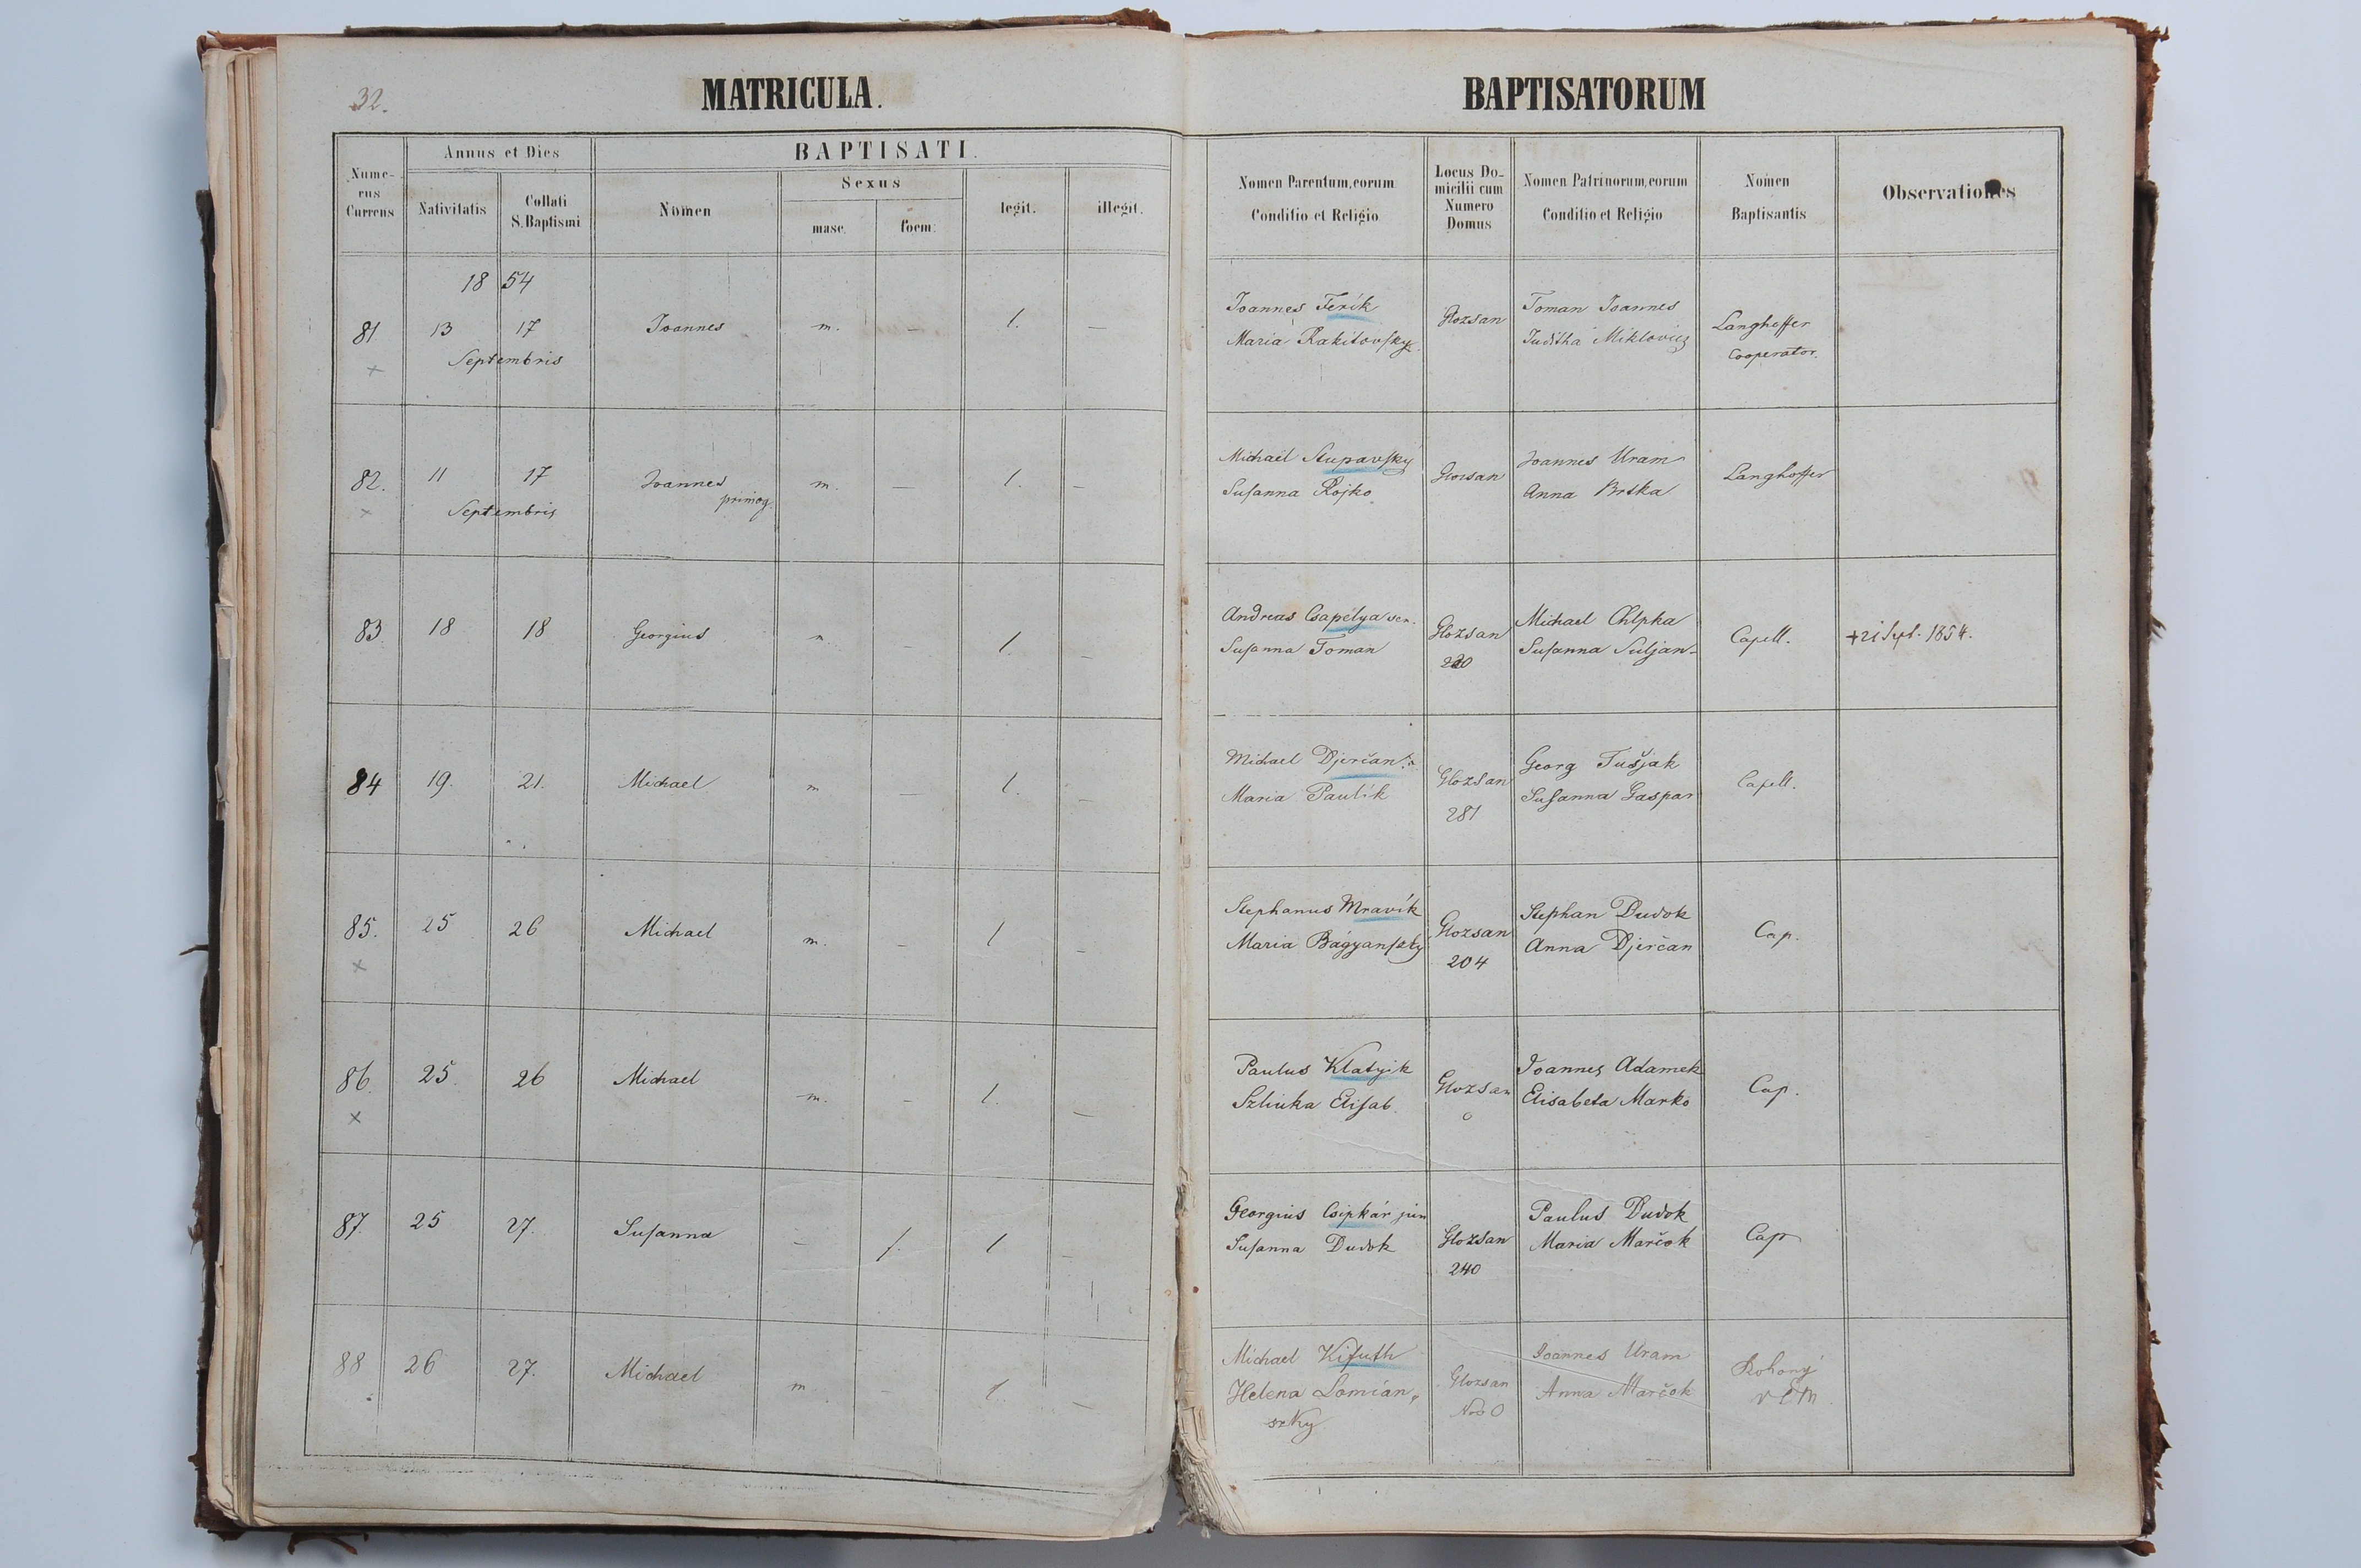 32.
MATRICULA.
BAPTISATORUM
Nume-
rus
Currens
Annus et Dies
Nativitatis
Collati
S. Baptismi
BAPTISATI.
Nomen
Sexus
masc.
foem.
legit.
illegit.
Nomen Parentum, eorum
Conditio et Religio
Locus Do-
micilii cum
Numero
Domus
Nomen Patrinorum, eorum
Conditio et Religio
Nomen
Baptisantis
Observationes
18 54
81 13 17 Joannes m. — l. —
Septembris
x
Joannes Ferik Glozsan Toman Joannes Langhoffer
Maria Rakitovsky Juditha Miklovicz Cooperator.
82. 11 17 Joannes m. — l. —
primog.
Septembris
x
Michael Stupavsky Glozsan Joannes Uram Langhoffer
Susanna Rojko Anna Brska
83 18 18 Georgius m. — l. —
Andreas Csapelya sen. Glozsan Michael Chlpka Capell. + 21 Sept. 1854.
Susanna Toman Susanna Suljan
84 19. 21. Michael m — l. —
Michael Djerčan Glozsan Georg Tušjak Capell.
Maria Paulik 281 Susanna Gaspar
85. 25 26 Michael m. — l —
x
Stephanus Mravik Glozsan Stephan Dudok Cap.
Maria Bágyanszky 204 Anna Djerčan
86 25 26 Michael m. — l. —
x
Paulus Klatyik Glozsan Joannes Adamek Cap.
Elisab. 0 Elisabeta Marko
87. 25 27. Susanna — f. l —
Georgius Csipkár jun Glozsan Paulus Dudok Cap
Susanna Dudok 240 Maria Marčok
88 26 27. Michael m — l. —
Michael Kifuth Glozsan Joannes Uram Rohony
Helena Lomian- Nro 0 Anna Marčok VDM
szky